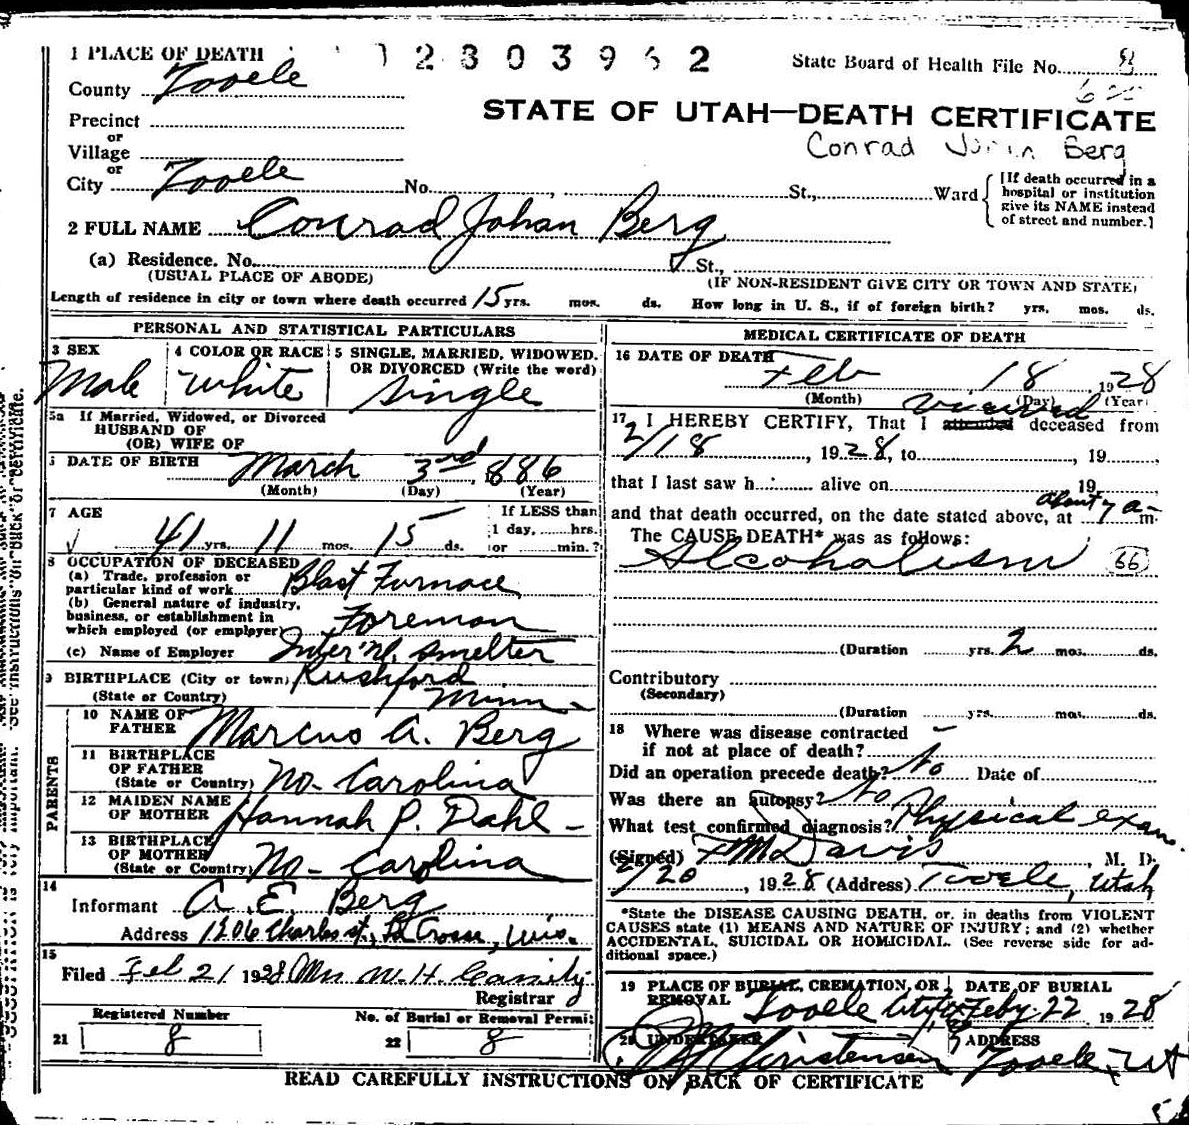 1 PLACE OF DEATH
1 2 8 0 3 9 6 2
State Board of Health File No. 8
County Tooele
STATE OF UTAH—DEATH CERTIFICATE
Precinct
or
Conrad Berg
Village
or
City Tooele No. , St., Ward
[If death occurred in a hospital or institution give its NAME instead of street and number.]
2 FULL NAME Conrad Johan Berg
(a) Residence. No. St.,
(USUAL PLACE OF ABODE) (IF NON-RESIDENT GIVE CITY OR TOWN AND STATE)
Length of residence in city or town where death occurred 15 yrs. mos. ds. How long in U. S., if of foreign birth? yrs. mos. ds.
PERSONAL AND STATISTICAL PARTICULARS
3 SEX
Male
4 COLOR OR RACE
White
5 SINGLE, MARRIED, WIDOWED, OR DIVORCED (Write the word)
Single
5a If Married, Widowed, or Divorced
HUSBAND OF
(OR) WIFE OF
DATE OF BIRTH March 3rd, 1886
(Month) (Day) (Year)
7 AGE
41 yrs. 11 mos. 15 ds.
If LESS than
1 day, ......hrs.
or ......min.?
8 OCCUPATION OF DECEASED
(a) Trade, profession or
particular kind of work Blast Furnace
(b) General nature of industry,
business, or establishment in
which employed (or employer) Foreman
(c) Name of Employer Inter'nl. Smelter
9 BIRTHPLACE (City or town) Rushford
(State or Country) Minn-
PARENTS
10 NAME OF
FATHER Marcus A. Berg
11 BIRTHPLACE
OF FATHER
(State or Country) No. Carolina
12 MAIDEN NAME
OF MOTHER Hannah P. Dahl -
13 BIRTHPLACE
OF MOTHER
(State or Country) No- Carolina
14
Informant A. E. Berg
Address 1206 Charles st., La Crosse, Wis.
15
Filed Feb 21 1928 Mrs W. H.
Registrar
Registered Number
21 8
No. of Burial or Removal Permit
22 8
MEDICAL CERTIFICATE OF DEATH
16 DATE OF DEATH
Feb 18 1928
(Month) (Day) (Year)
viewed
17 I HEREBY CERTIFY, That I attended deceased from
2/18, 1928, to , 19
that I last saw h alive on 19
about 7 a-
and that death occurred, on the date stated above, at m.
The CAUSE DEATH* was as follows:
Alcoholism 66
(Duration yrs. 2 mos. ds.
Contributory
(Secondary)
(Duration yrs. mos. ds.
18 Where was disease contracted
if not at place of death? -
Did an operation precede death? No Date of
Was there an autopsy? No
What test confirmed diagnosis? Physical exam.
(Signed) F M Davis, M. D.
2/20, 1928 (Address) Tooele, Utah
*State the DISEASE CAUSING DEATH, or, in deaths from VIOLENT
CAUSES state (1) MEANS AND NATURE OF INJURY; and (2) whether
ACCIDENTAL, SUICIDAL OR HOMICIDAL. (See reverse side for additional space.)
19 PLACE OF BURIAL, CREMATION, OR REMOVAL
Tooele City
DATE OF BURIAL
Feby 22 1928
20 UNDERTAKER
Christensen
ADDRESS
Tooele, Ut
READ CAREFULLY INSTRUCTIONS ON BACK OF CERTIFICATE